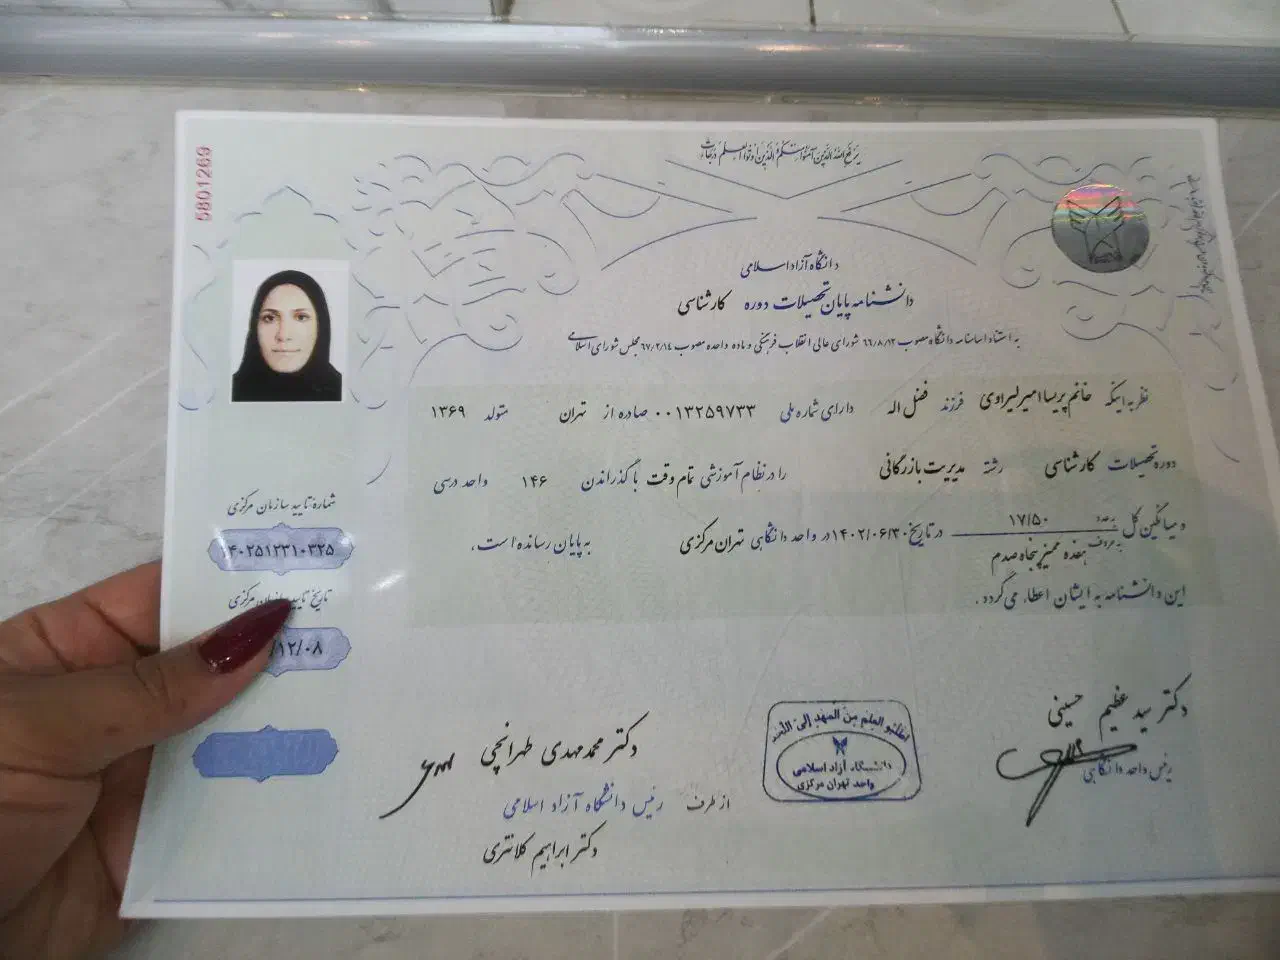 یرفع الله الذین آمنوا منکم و الذین اوتوا العلم درجات
5801269
دانشگاه آزاد اسلامی
دانشنامه پایان تحصیلات دوره کارشناسی
به استناد اساسنامه دانشگاه مصوب ۶۶/۸/۱۲ شورای عالی انقلاب فرهنگی و ماده واحده مصوب ۶۷/۲/۱۴ مجلس شورای اسلامی
نظر به اینکه خانم پریسا امیرلیراوی فرزند فضل اله دارای شماره ملی ۰۰۱۳۲۵۹۷۳۳ صادره از تهران متولد ۱۳۶۹
دوره تحصیلات کارشناسی رشته مدیریت بازرگانی را در نظام آموزشی تمام وقت با گذراندن ۱۴۶ واحد درسی
و میانگین کل به عدد ۱۷/۵۰ در تاریخ ۱۴۰۲/۰۶/۳۰ در واحد دانشگاهی تهران مرکزی به پایان رسانده است،
به حروف هفده ممیز پنجاه صدم
این دانشنامه به ایشان اعطاء می گردد.
شماره تایید سازمان مرکزی
۱۴۰۲۵۱۲۳۱۰۳۲۵
تاریخ تایید سازمان مرکزی
/۱۲/۰۸
دکتر سید عظیم حسینی
رئیس واحد دانشگاهی
اطلبو العلم من المهد إلی اللحد
دانشگاه آزاد اسلامی
واحد تهران مرکزی
دکتر محمدمهدی طهرانچی
از طرف رئیس دانشگاه آزاد اسلامی
دکتر ابراهیم کلانتری